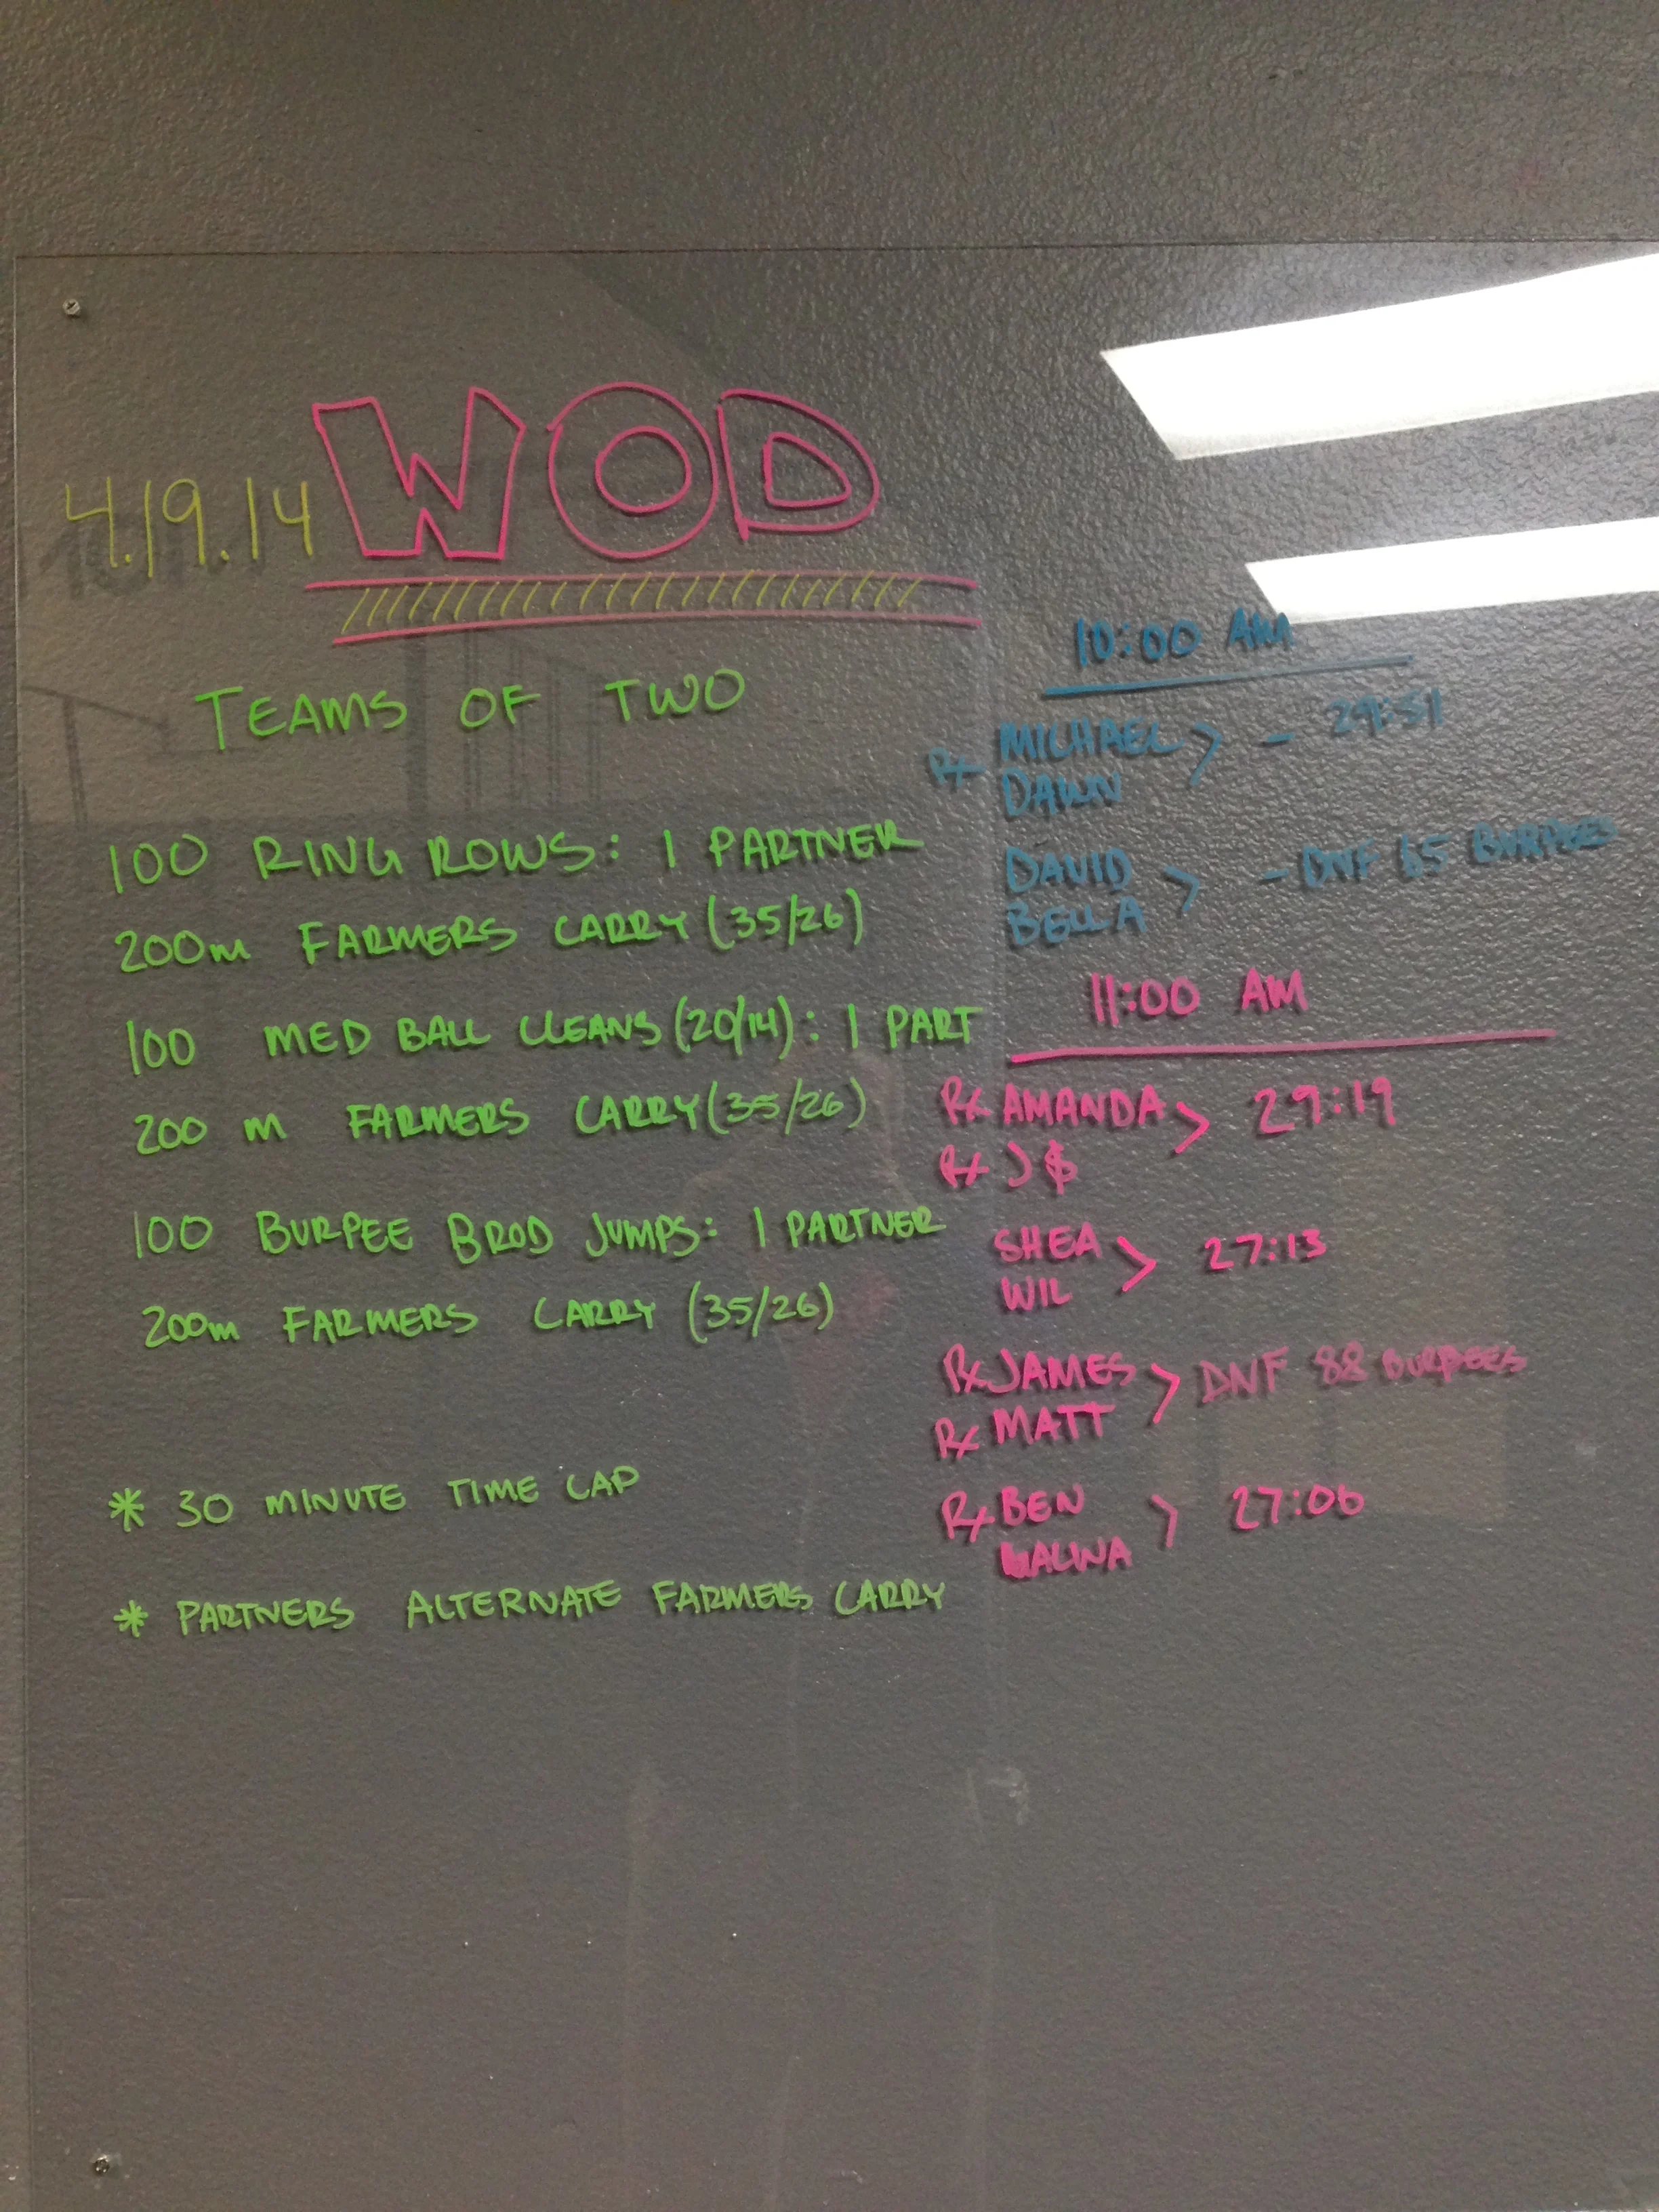 4.19.14 WOD
TEAMS OF TWO
100 RING ROWS: 1 PARTNER
200m FARMERS CARRY (35/26)
100 MED BALL CLEANS (20/14): 1 PART
200 m FARMERS CARRY (35/26)
100 BURPEE BROD JUMPS: 1 PARTNER
200m FARMERS CARRY (35/26)
* 30 MINUTE TIME CAP
* PARTNERS ALTERNATE FARMERS CARRY
10:00 AM
Rx MICHAEL > - 29:51
DAWN
DAVID > - DNF 65 BURPEES
BELLA
11:00 AM
Rx AMANDA > 29:19
Rx J$
SHEA > 27:13
WIL
Rx JAMES > DNF 88 BURPEES
Rx MATT
Rx BEN > 27:06
GALINA